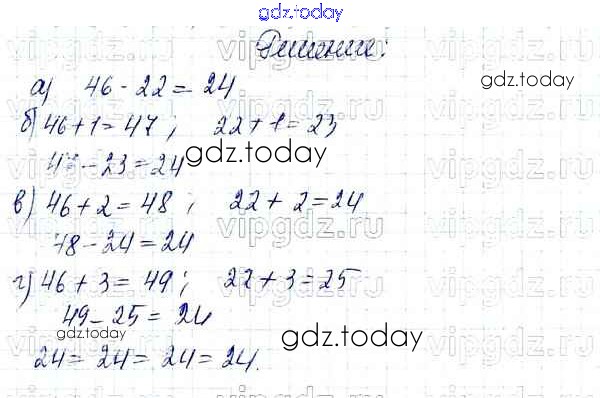 gdz.today
Решение:
а) 46 - 22 = 24
gdz.today
б) 46 + 1 = 47 ; 22 + 1 = 23
47 - 23 = 24
gdz.today
в) 46 + 2 = 48 ; 22 + 2 = 24
48 - 24 = 24
г) 46 + 3 = 49 ; 22 + 3 = 25
49 - 25 = 24
gdz.today
24 = 24 = 24 = 24.
vipgdz.ru